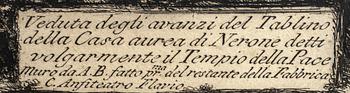 Veduta degli avanzi del Tablino
della Casa aurea di Nerone detti
volgarmente il Tempio della Pace
Muro da A.B. fatto pr.ma del restante della Fabbrica
C. Anfiteatro Flavio